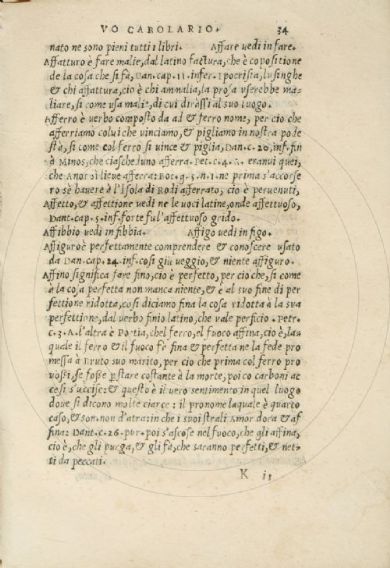 VOCABOLARIO. 34
nato ne sono pieni tutti i libri. Affare uedi in fare.
Affatturo è fare malie, dal latino factura, che è copositione
de la cosa che si fa, Dan. cap. 11. infer. Ipocrisia, lusinghe
& chi affattura, cio è chi ammalia, la prosa userebbe ma-
liare, si come usa malie, di cui dirassi al suo luogo.
Afferro è uerbo composto da ad & ferro nome, per cio che
afferriamo colui che uinciamo, & pigliamo in nostra pode
stà, si come col ferro si uince & piglia, Dan. c. 20. inf. fin
à Minos, che ciascheduno afferra. Pet. c. 4. A. eranui quei,
che Amor si lieue afferra: Boc. g. 5. n. 1. ne prima s'accorse
ro sè hauere à l'Isola di Rodi afferrato, cio è peruenuti,
Affetto, & affettione uedi ne le uoci latine, onde affettuoso,
Dant. cap. 5. inf. forte ful'affettuoso grido.
Affibbio uedi in fibbia. Affigo uedi in figo.
Affiguro è perfettamente comprendere & conoscere usato
da Dan. cap. 24. inf. cosi giu ueggio, & niente affiguro.
Affino significa fare fino, cio è perfetto, per cio che, si come
à la cosa perfetta non manca niente, & è al suo fine di per
fettione ridotta, cosi diciamo fina la cosa ridotta à la sua
perfettione, dal uerbo finio latino, che uale perficio. Petr.
c. 3. A. l'altra è Portia, chel ferro, el fuoco affina, cio è, la
quale il ferro & il fuoco fè fina & perfetta ne la fede pro
messa à Bruto suo marito, per cio che prima col ferro pro
uossi, se fosse p stare costante à la morte, poi co carboni ac
cesi s'uccise: & questo è il uero sentimento in quel luogo
doue si dicono molte ciarce: il pronome laquale è quarto
caso, & son. non d'atra: che i suoi strali Amor dora & af
fina: Dant. c. 26. pur. poi s'ascose nel fuoco, che gli affina,
cio è, che gli purga, & gli fà, che saranno perfetti, & net-
ti da peccati.
K ii